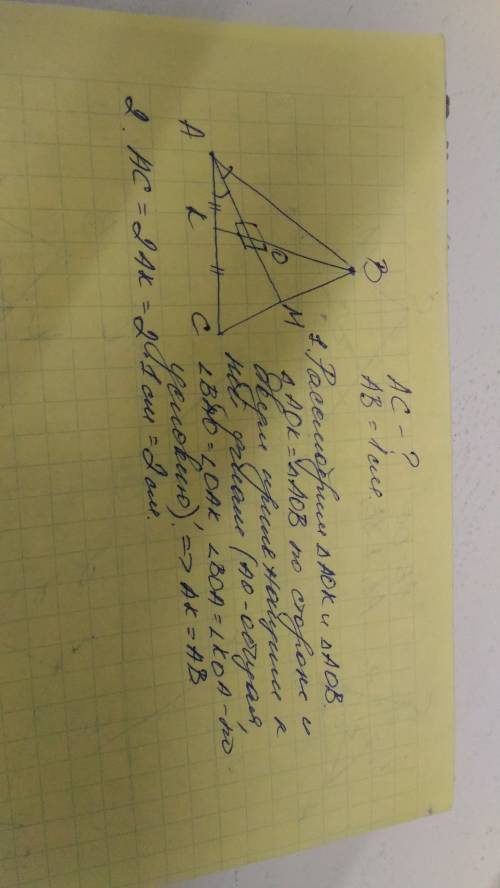 B
A
K
C
O
M
AC - ?
AB = 1 см.
1. Рассмотрим ΔAOK и ΔAOB.
ΔAOK = ΔAOB по стороне и
двум прилежащим к
ней углам (AO - общая,
∠BAO = ∠OAK, ∠BOA = ∠KOA - по
условию). => AK = AB
2. AC = 2AK = 2·1 см = 2 см.